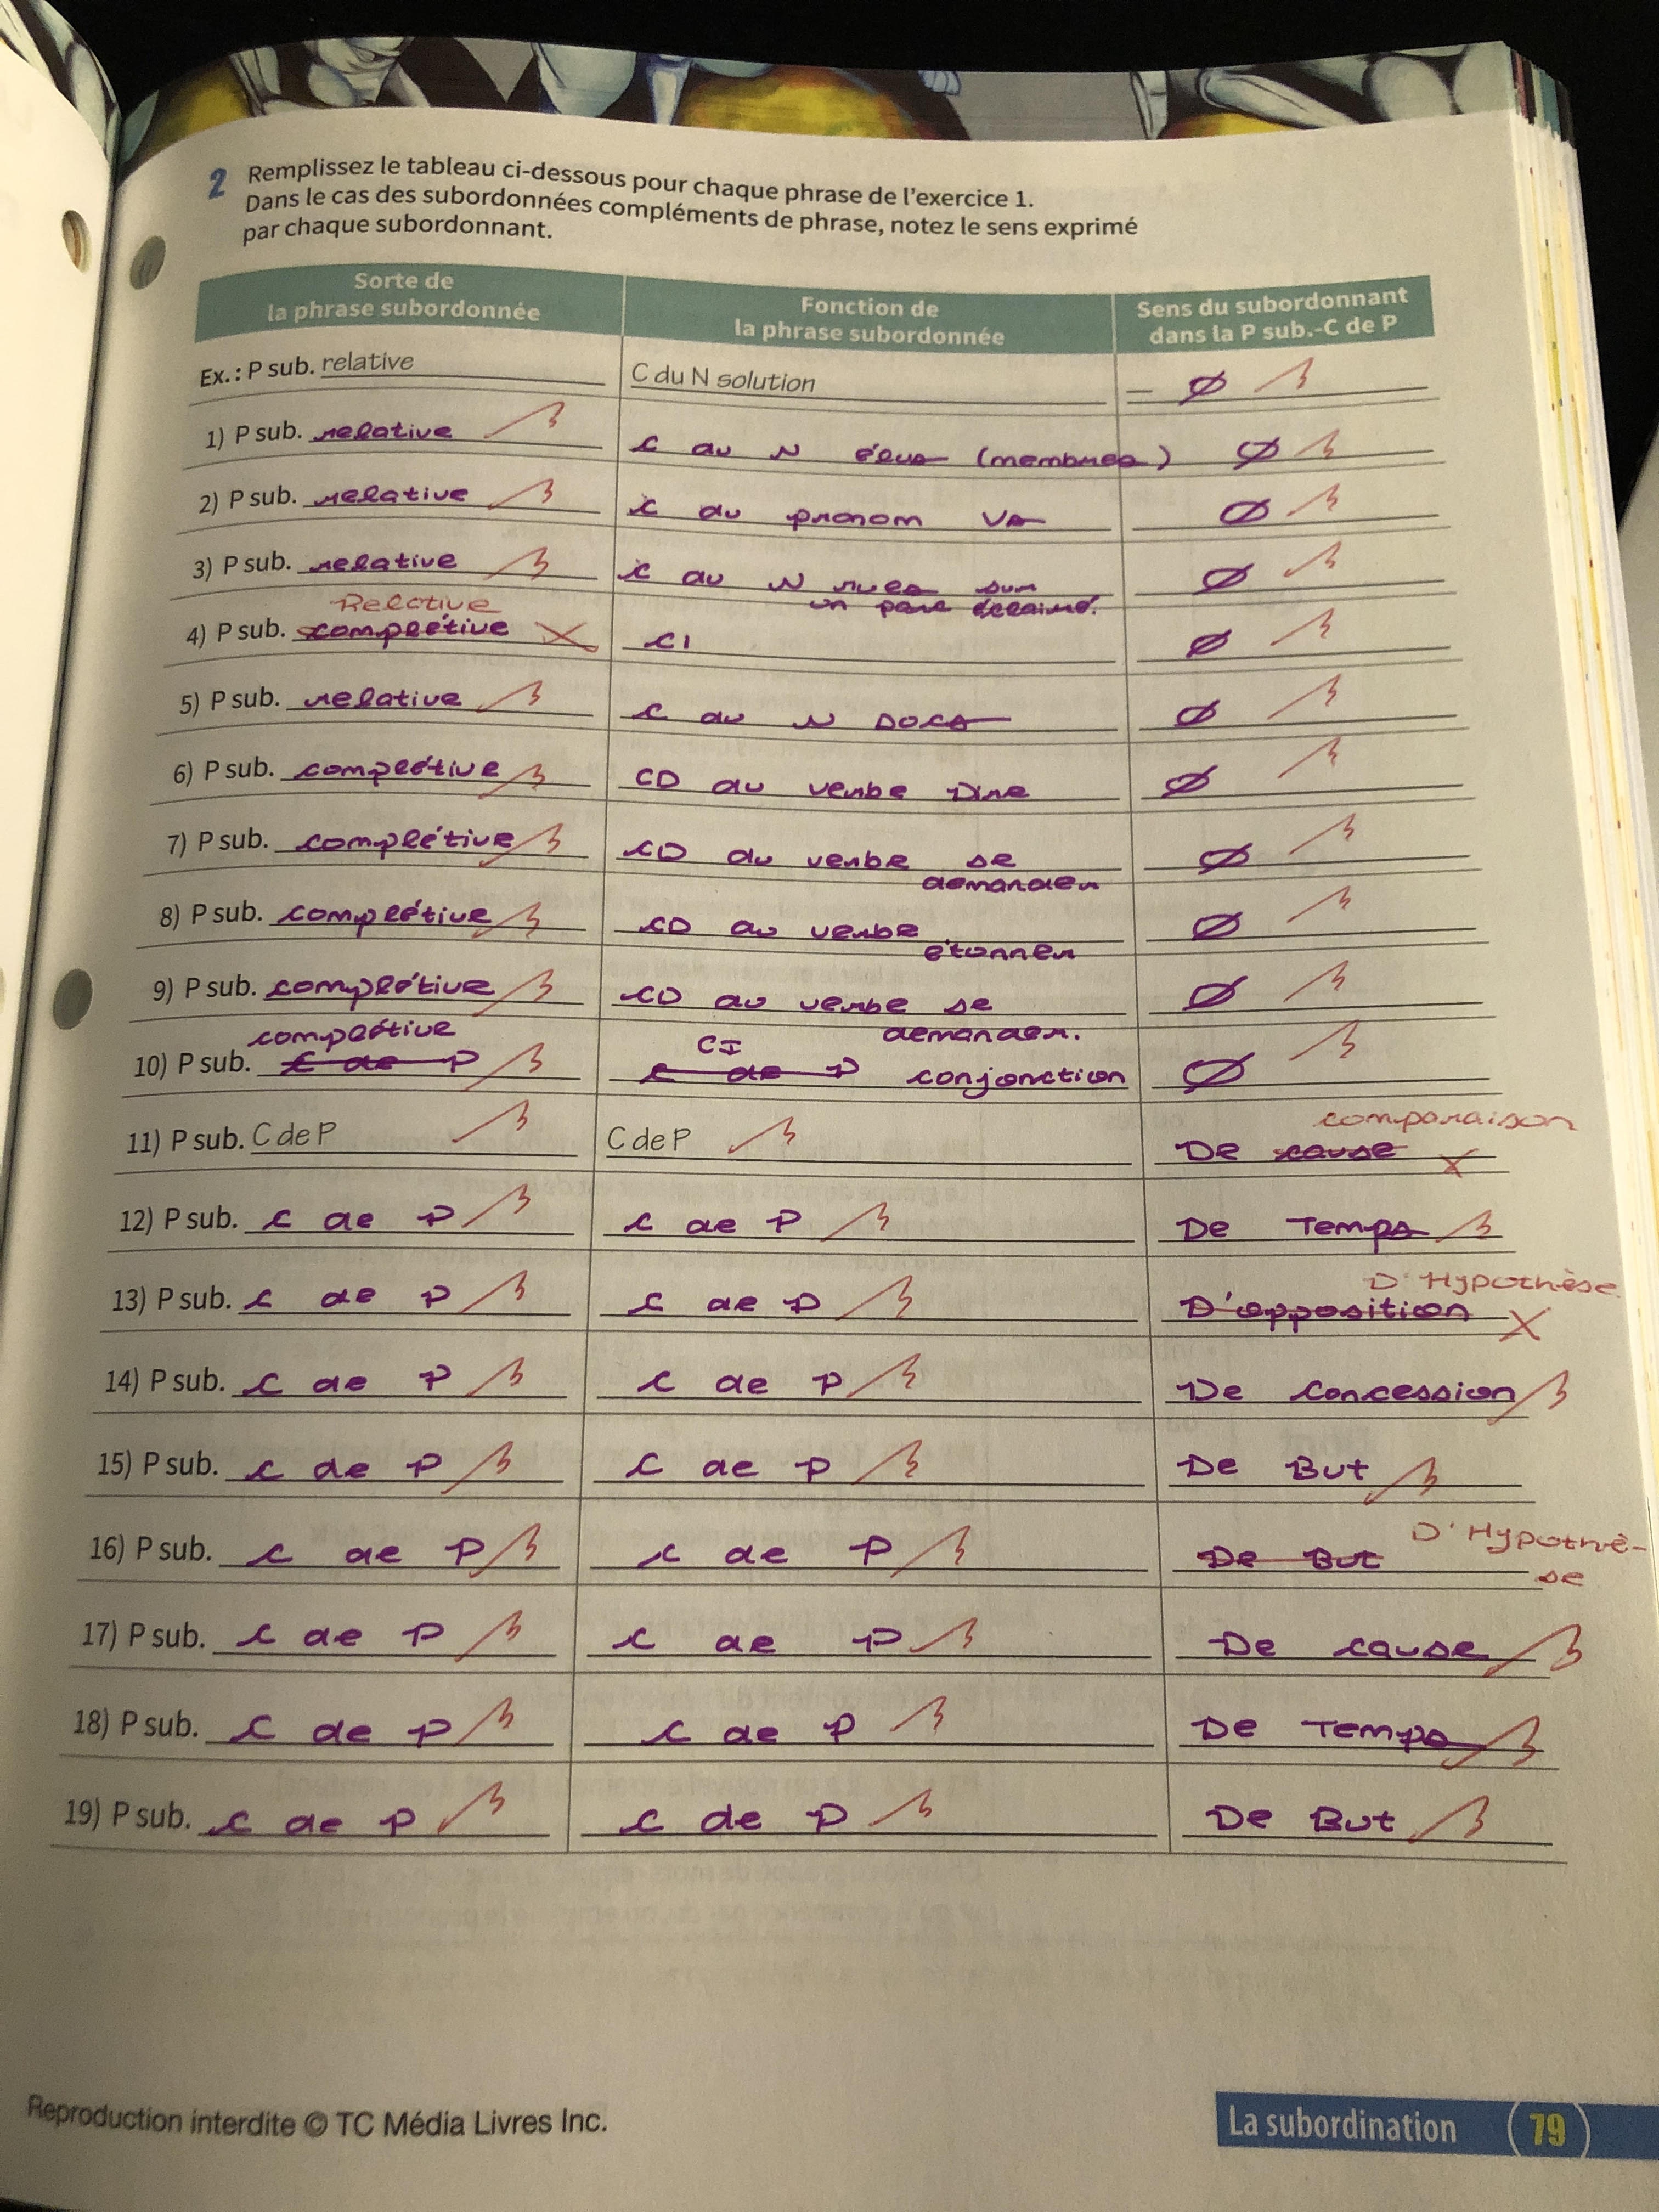 2 Remplissez le tableau ci-dessous pour chaque phrase de l'exercice 1.
Dans le cas des subordonnées compléments de phrase, notez le sens exprimé
par chaque subordonnant.
Sorte de la phrase subordonnée Fonction de la phrase subordonnée Sens du subordonnant dans la P sub.-C de P
Ex. : P sub. relative C du N solution – ø
1) P sub. relative C du N élus (membres) ø
2) P sub. relative C du pronom ø
3) P sub. relative C du N rues sur ø
un parc éclairé.
Relative
4) P sub. complétive CI ø
5) P sub. relative C du N DOCS ø
6) P sub. complétive CD du verbe Dire ø
7) P sub. complétive CD du verbe se ø
demander
8) P sub. complétive CD du verbe ø
étonner
9) P sub. complétive CD du verbe se ø
demander.
complétive CI
10) P sub. C de P C de P conjonction ø
comparaison
11) P sub. C de P C de P De cause
12) P sub. C de P C de P De Temps
D'Hypothèse
13) P sub. C de P C de P D'opposition
14) P sub. C de P C de P De concession
15) P sub. C de P C de P De But
D'Hypothè-
16) P sub. C de P C de P De But
se
17) P sub. C de P C de P De cause
18) P sub. C de P C de P De Temps
19) P sub. C de P C de P De But
Reproduction interdite © TC Média Livres Inc.
La subordination 79